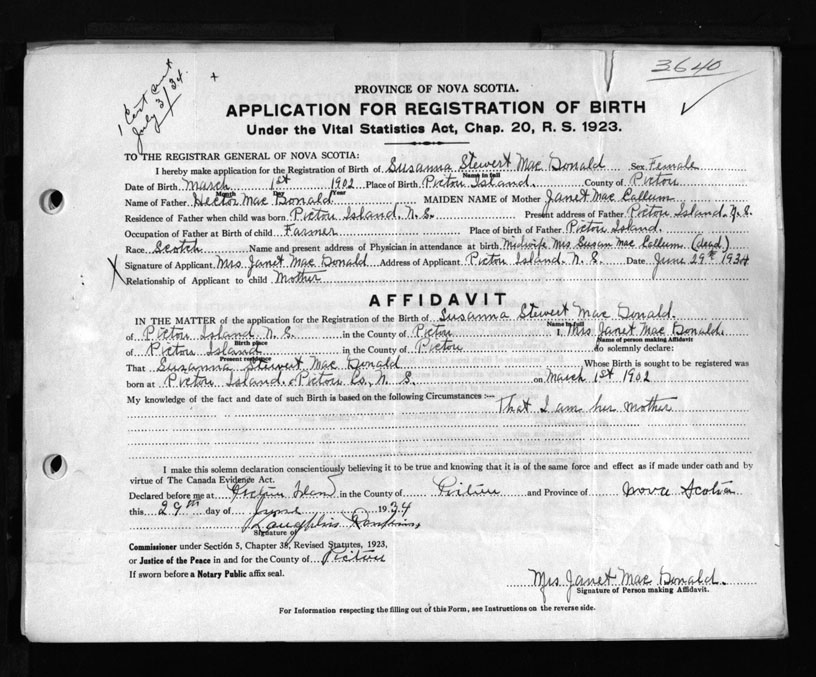 1 Cert sent
July 3/34
+
3640
PROVINCE OF NOVA SCOTIA.
APPLICATION FOR REGISTRATION OF BIRTH
Under the Vital Statistics Act, Chap. 20, R. S. 1923.
TO THE REGISTRAR GENERAL OF NOVA SCOTIA:
I hereby make application for the Registration of Birth of Susanna Stewert Mac Donald Sex Female
Name in full
Date of Birth March 1st 1902 Place of Birth Pictou Island. County of Pictou
Month Day Year
Name of Father Hector Mac Donald MAIDEN NAME of Mother Janet Mac Callum
Residence of Father when child was born Pictou Island. N. S. Present address of Father Pictou Island. N. S.
Occupation of Father at Birth of child Farmer Place of birth of Father Pictou Island.
Race Scotch Name and present address of Physician in attendance at birth Midwife Mrs Susan Mac Callum. (dead.)
X Signature of Applicant Mrs. Janet Mac Donald Address of Applicant Pictou Island. N. S. Date June 29th 1934
Relationship of Applicant to child Mother
AFFIDAVIT
IN THE MATTER of the application for the Registration of the Birth of Susanna Stewert Mac Donald.
Name in full
of Pictou Island. N. S. in the County of Pictou I, Mrs. Janet Mac Donald
Birth place Name of person making Affidavit
of Pictou Island in the County of Pictou do solemnly declare:
Present residence
That Susanna Stewert Mac Donald Whose Birth is sought to be registered was
born at Pictou Island. Pictou Co., N. S. on March 1st 1902
My knowledge of the fact and date of such Birth is based on the following Circumstances :—
That I am her mother
I make this solemn declaration conscientiously believing it to be true and knowing that it is of the same force and effect as if made under oath and by
virtue of The Canada Evidence Act.
Declared before me at Pictou Island in the County of Pictou and Province of Nova Scotia
this 29th day of June 1934
Signature of
Commissioner under Section 5, Chapter 38, Revised Statutes, 1923,
or Justice of the Peace in and for the County of Pictou
If sworn before a Notary Public affix seal.
Mrs Janet Mac Donald.
Signature of Person making Affidavit.
For Information respecting the filling out of this Form, see Instructions on the reverse side.